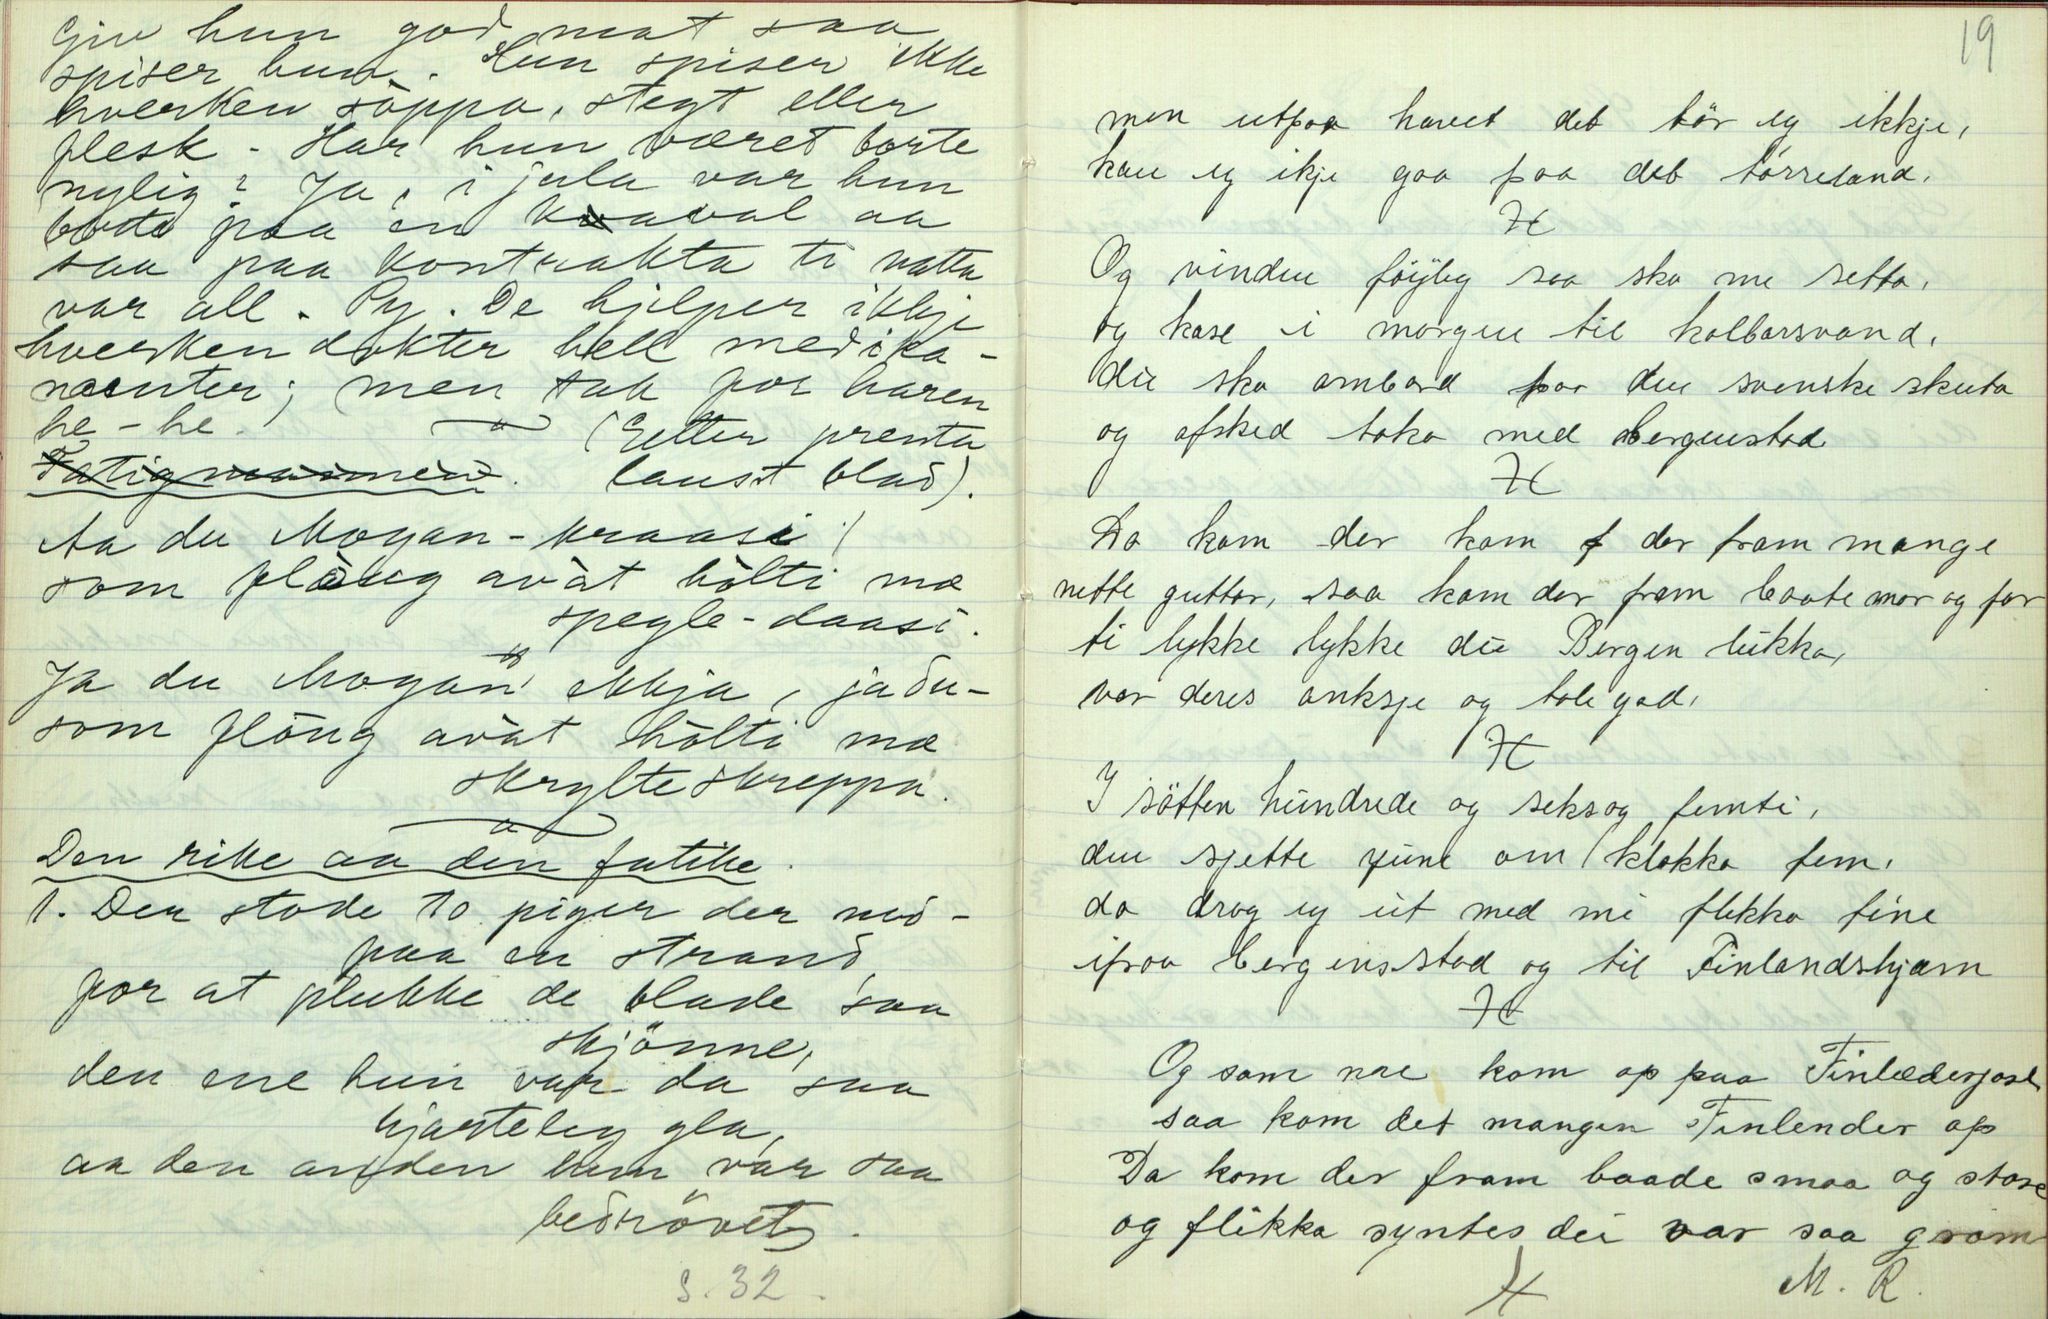 Giv hun god mat saa
spiser hun. Hun spiser ikke
hverken söppa, stegt eller
flesk - Har hun været borte
nylig? Ja, i jula var hun
borte paa en kvaval aa
saa paa kontrakta ti natta
var all. Py. De hjelper ikkje
hverken dokter hell medika-
menter; men tak for haren
he-he.
(Etter prenta
laust blad).
Aa du Mogan-Kraasi!
som flàug avàt hölti mæ
spegle-daasi.
Ja du Mogan Mkja, ja du-
som flöug avàt hölti mæ
skrylteskreppa.
Den rike aa den fatike.
1. Der stode to piger der ned-
paa en strand
for at plukke de blade saa
skjönne,
den ene hun var da saa
hjarteleg gla,
aa den anden hun var saa
bedrövet.
S. 32.
19
men utpaa havet det tör eg ikkje,
kan eg ikje gaa paa det törreland.
Og vinden föyleg saa ska me setta,
og kase i morgen til kolbarsvand.
dei ska ombord paa den svenske skuta
og afsked taka med Bergenstad
Da kom der kom f der fram mange
nette guttar, saa kom der fram baate mor og far
ti lykke lykke dei Bergen lukka,
var deres anksje og tale gad.
I sötten hundrede og seksog femti,
den sjette june om klokka fem,
da drog eg ut med mi flikka fine
ifraa bergensstad og til Finlandshjæm
Og som nae kom op paa Finlædesjasl
saa kom det mangen Finlender op
Da kom der fram baade smaa og store
og flikka syntes dei var saa gram
M. R.